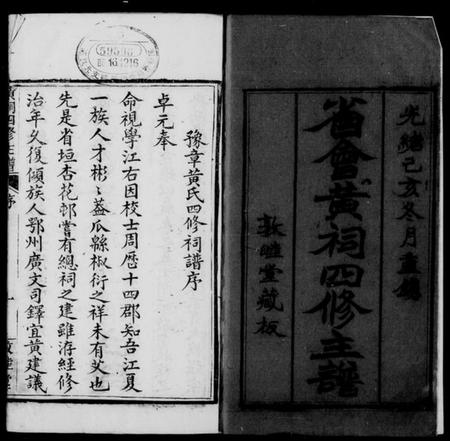 光緒己亥冬月重鐫
省會黃祠四修主譜
敦睦堂藏板
豫章黃氏四修祠譜序
卓元奉
命視學江右因校士周歷十四郡知吾江夏
一族人才彬彬蓋瓜緜椒衍之祥未有艾也
先是省垣杏花邨嘗有總祠之建雖洊經修
治年久復傾族人鄂州廣文司鐸宜黃建議
黃祠四修主譜
序
一
59596
16 1216